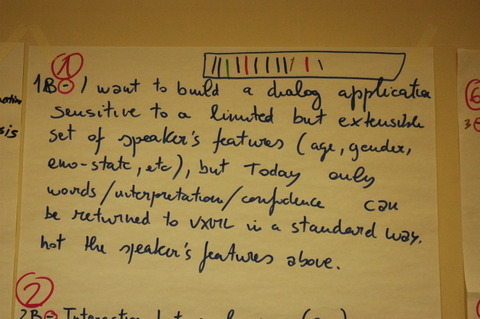 1
1B - I want to build a dialog application
sensitive to a limited but extensible
set of speaker's features (age, gender,
emo-state, etc), but today only
words/interpretation/confidence can
be returned to VXML in a standard way,
not the speaker's features above.
2
2B
6
3